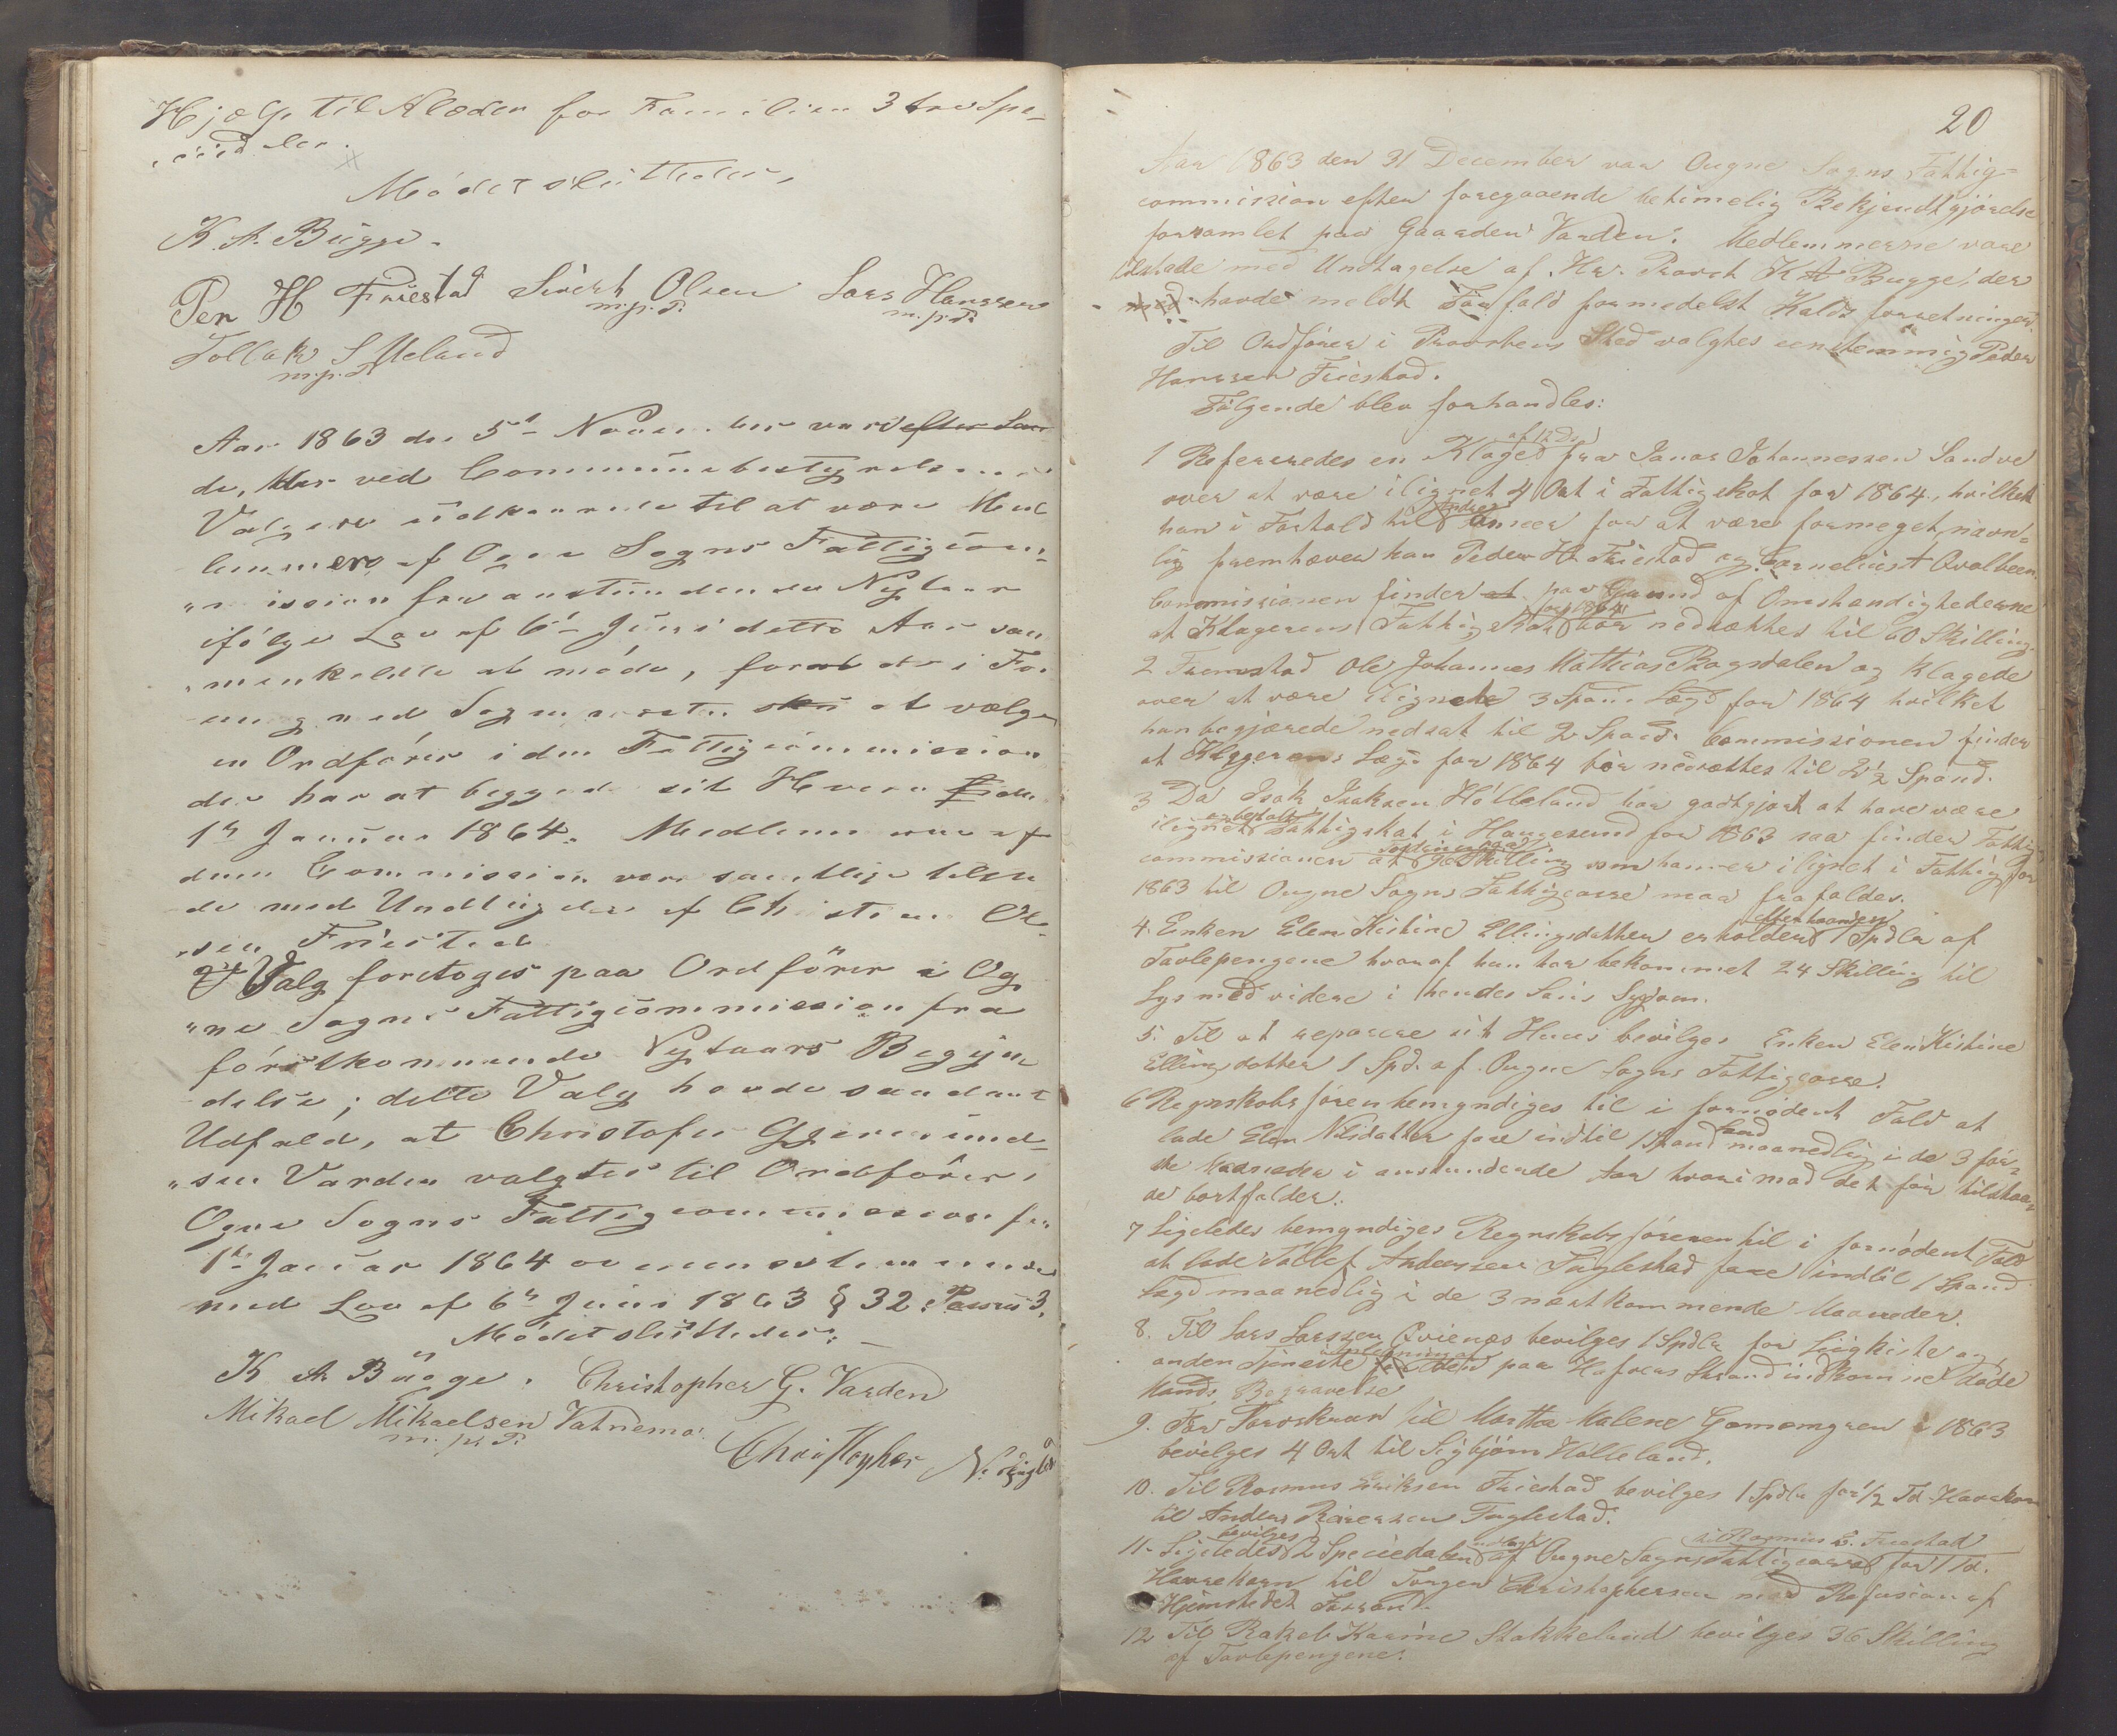 Hjælp til Klæder for Familien 3 tre Spe-
ciedaler.
Mödet sluttedes,
K. A. Bugge.
Per H Friestad Sivert Olsen Lars Hanssen
m.p.P. m.p.P.
Tollak S Meland
m.p.P.
Aar 1863 den 5te November vare efter Lan
de, ved Communebestyrelsens
Valg udkaarede til at være Med
lemmer af Ogne Sogns Fattigcom-
mission fra anstundende Nytaar
ifölge Lov af 6te Juni dette Aar sam
menkaldte at möde, for at de i For
ening med Sognepræsten sku at vælge
en Ordförer i den Fattigcommission
der har at begynde sit Hverv
1te Januar 1864. Medlemmerne af
denne Commission vare samtlige tilste
de med Undtagelse af Christian Ol-
sen Friestad
Valg foretoges paa Ordförer i Og
ne Sogns Fattigcommission fra
förstkommende Nytaars Begyn
delse; dette Valg havde saadant
Udfald, at Christofer Gjermund-
sen Varden valgtes til Ordförer i
Ogne Sogns Fattigcommission fra
1te Januar 1864 overensstemmende
med Lov af 6te Juni 1863 § 32. Passus 3.
Mödet sluttedes.
K A Bugge. Christopher G. Varden
Mikael Mikaelsen Vatnemo
m.p.P.
Christopher N.
20
Aar 1863 den 31 December var Ougne Sogns Fattig-
commission efter foregaaende betimelig Bekjendtgjörelse
forsamlet paa Gaarden Varden. Medlemmerne vare
tilstede med Undtagelse af Hr. Provst K A Bugge, der
havde meldt Forfald formedelst Kaldsforretninger.
Til Ordförer i Provstens Sted valgtes eenstemmig Peder
Hanssen Friestad.
Fölgende blev forhandles:
1 Refereredes en Klage af 12 Ds fra Jonas Johannessen Sandve
over at være ilignet 4 Ort i Fattigskat for 1864, hvilket
han i Forhold til Andre anseer for at være formeget, navn-
lig fremhæver han Peder H. Friestad og Cornelius A Qvalbeen.
Commissionen finder at paa Grund af Omstændighederne
at Klagerens Fattigskat for 1864 bör nedsættes til 60 Skilling.
2 Fremstod Ole Johannes Mathias Bagsdalen og klagede
over at være ilignet 3 Spand Lægd for 1864 hvilket
han begjærede nedsat til 2 Spand. Commissionen finder
at Klagerens Lægd for 1864 bör nedsættes til 2½ Spand.
3 Da Isak Isaksen Hölleland har godtgjort at have være
ilignet og betalt Fattigskat i Haugesund for 1863 saa finder Fattig
commissionen at de Skilling som han er ilignet i Fattig for
1863 til Ougne Sogns Fattigcasse maa frafaldes.
4. Enken Elen Kistine Ellingsdatter erholder efterhaanden 1 Spdlr af
Tavlepengene hvoraf hun har bekommet 24 Skilling til
Lys med videre i hendes Söns Sygdom.
5. Til at reparere sit Huus bevilges Enken Elen Kistine
Ellingsdatter 1 Spd. af Ougne Sogns Fattigcasse.
6 Regnskabsföreren bemyndiges til i fornödent Fald at
lade Elen Nilsdatter faae indtil 1 Spand Lægd maanedlig i de 3 för-
ste Maaneder i anstundende Aar hvorimod det för tilstaae-
de bortfalder.
7 Ligeledes bemyndiges Regnskabsföreren til i fornödent Fald
at lade Tollef Andersen Fuglestad faae indtil 1 Spand
Lægd maanedlig i de 3 næstkommende Maaneder.
8. Til Lars Larssen Qvienæs bevilges 1 Spdlr for Liigkiste og
anden Tjeneste i Anledning af den paa Hafvens Strand indkomne döde
Mands Begravelse
9. For Toroskrav til Martha Malene Gomomgren i 1863
bevilges 4 Ort til Sigbjörn Hölleland.
10. Til Rasmus Eriksen Friestad bevilges 1 Spdlr for ½ Td Havrekorn
til Anders Fuglestad.
11. Ligeledes bevilges 2 Speciedaler af Ougne Sogns Fattigcasse til Rasmus E. Friestad for 1 Td.
Havrekorn til Torger Christophersen med Refusion af
Hjemstedet
12 Til Rakel Karine Stokkeland bevilges 36 Skilling
af Tavlepengene.